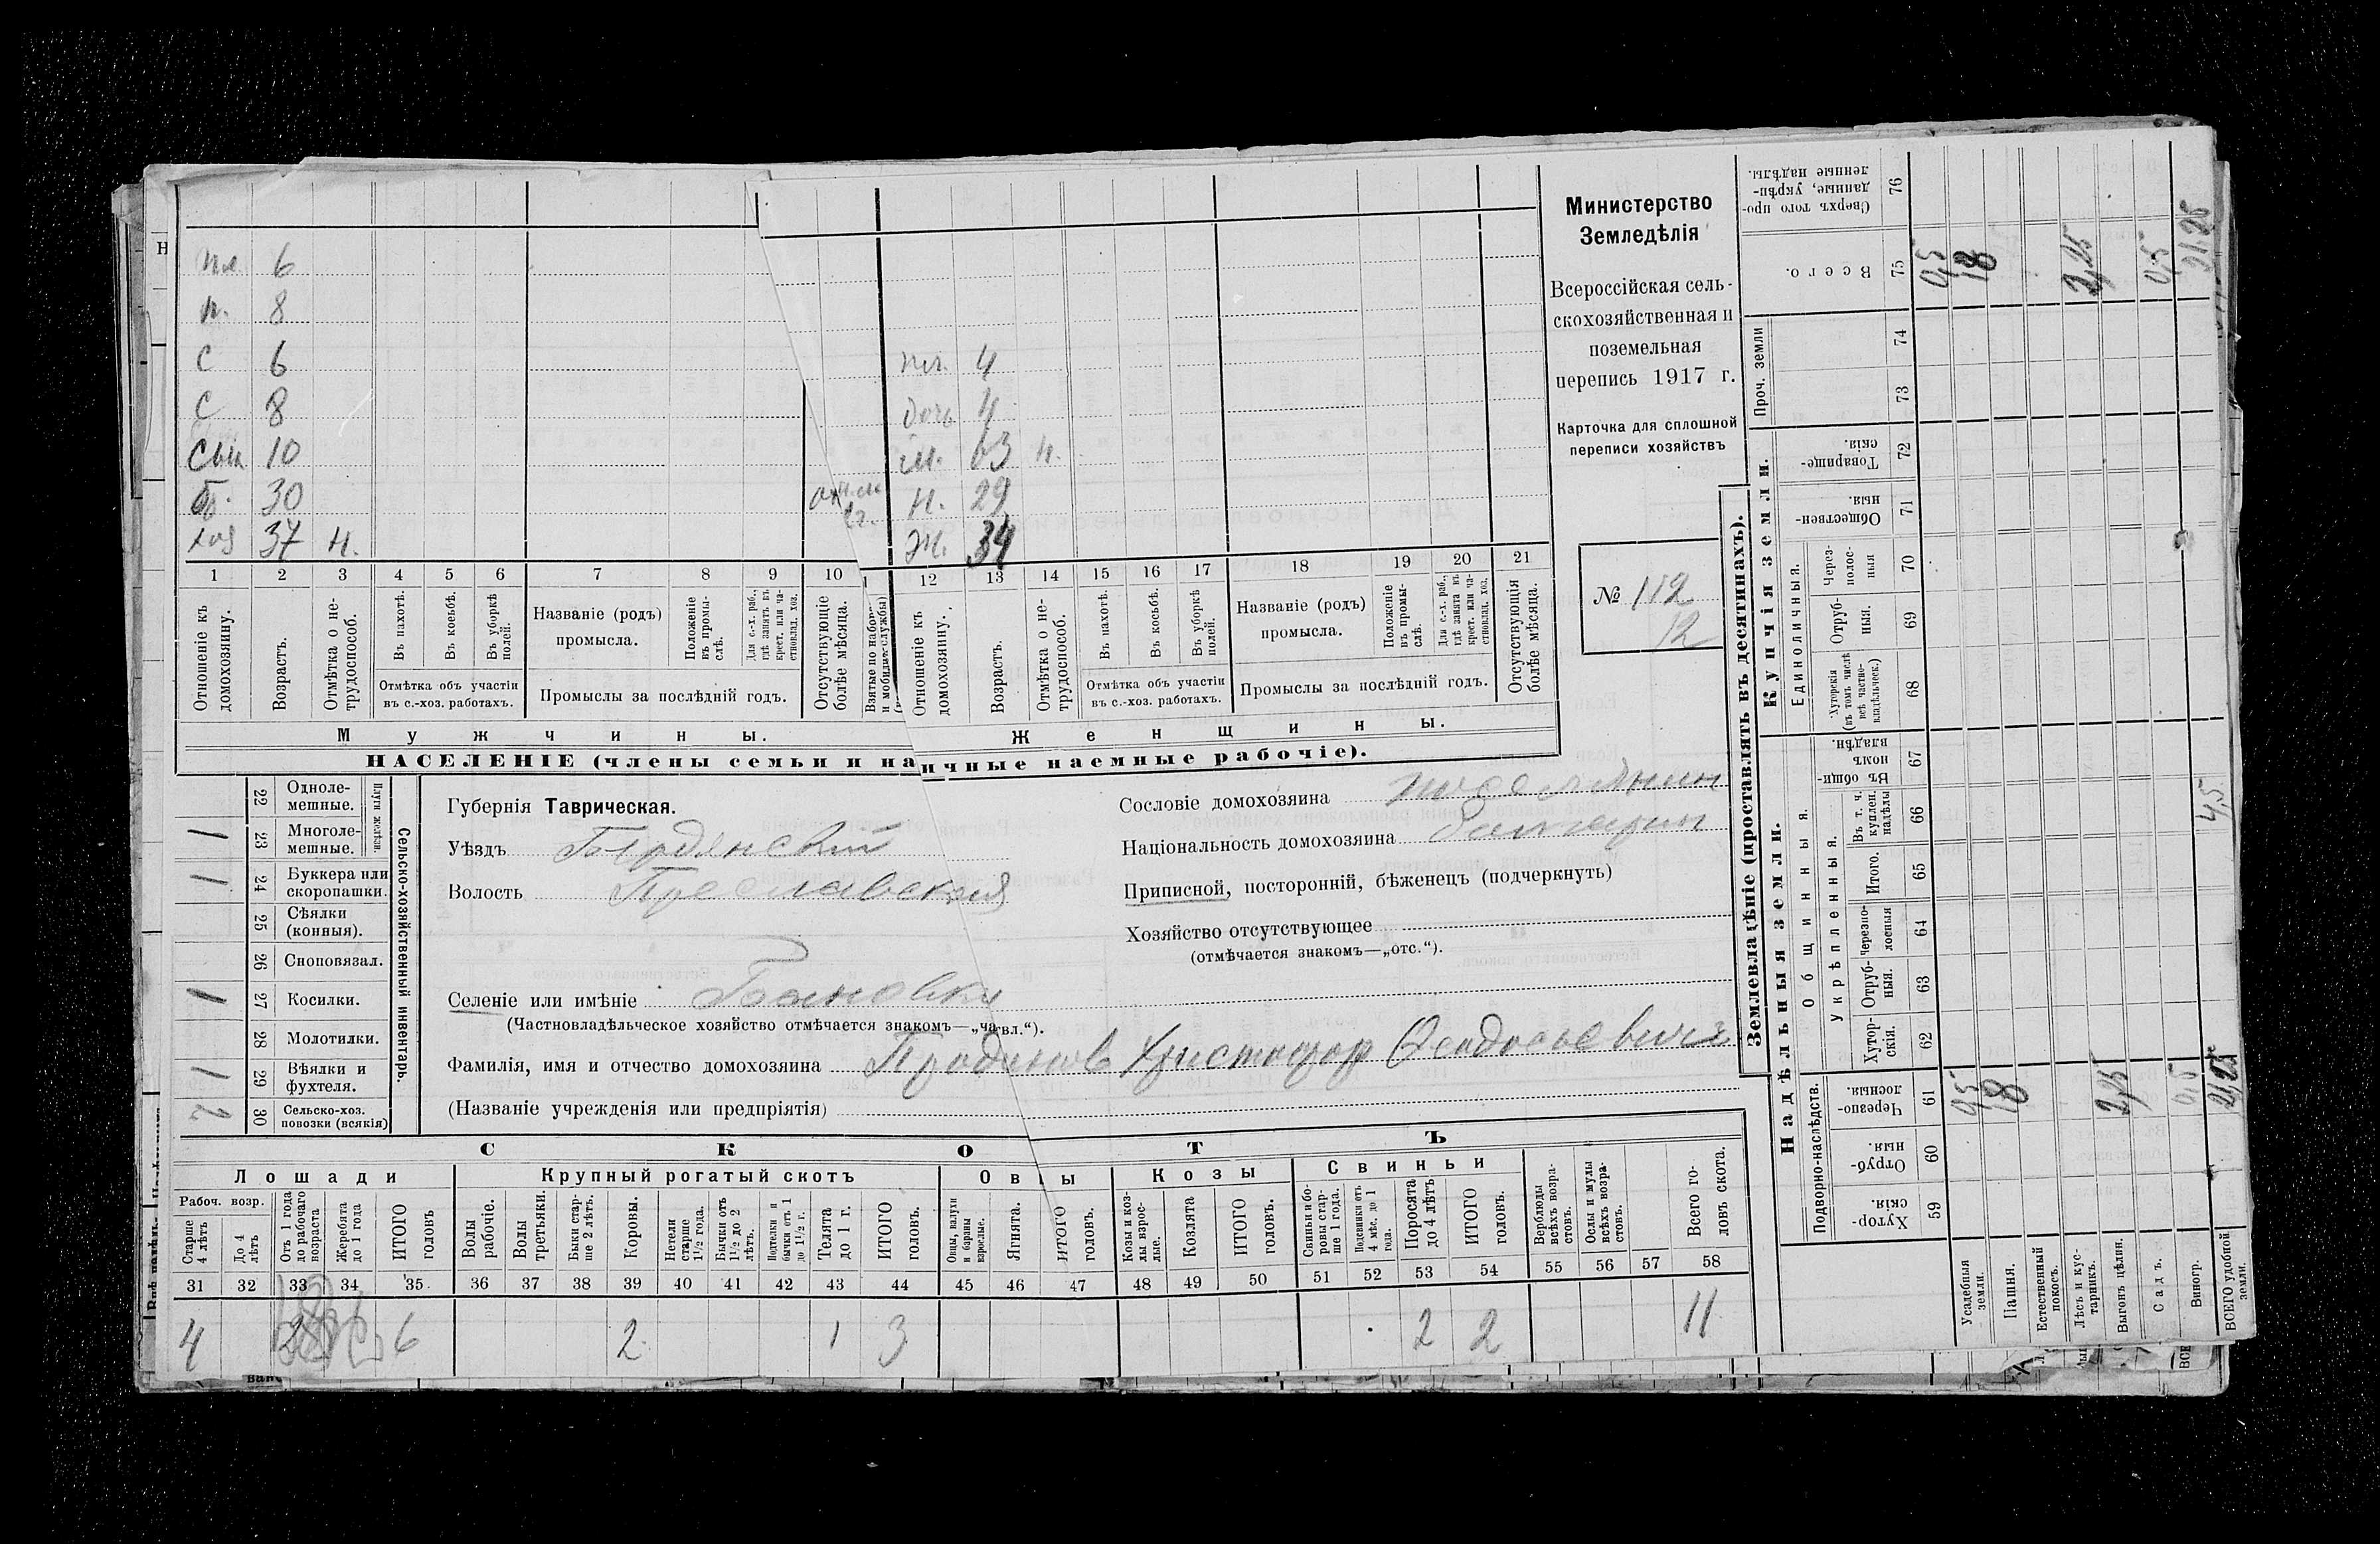 Министерство
Земледѣлія
Всероссійская сель-
скохозяйственная и
поземельная
перепись 1917 г.
Карточка для сплошной
переписи хозяйствъ
№ 112
12
пл 6
п. 8
с 6
с 8
сын 10
б. 30
хоз 37 н.
пл. 4
дочь
63 н.
н. 29
ж. 34
1 2 3 4 5 6 7 8 9 10 12 13 14 15 16 17 18 19 20 21
Отношеніе къ домохозяину.
Возрастъ.
Отмѣтка о не-трудоспособ.
Въ пахотѣ.
Въ косьбѣ.
Въ уборкѣ полей.
Отмѣтка объ участіи
въ с.-хоз. работахъ.
Названіе (родъ)
промысла.
Положеніе въ промы-слѣ.
Для с.-х. раб., гдѣ занятъ въ крест. или ча-стновлад. хоз.
Промыслы за послѣдній годъ.
Отсутствующіе болѣе мѣсяца.
Отношеніе къ домохозяину.
Возрастъ.
Отмѣтка о не-трудоспособ.
Въ пахотѣ.
Въ косьбѣ.
Въ уборкѣ полей.
Отмѣтка объ участіи
въ с.-хоз. работахъ.
Названіе (родъ)
промысла.
Положеніе въ промы-слѣ.
Для с.-х. раб., гдѣ занята въ крест. или ча-стновлад. хоз.
Промыслы за послѣдній годъ.
Отсутствующія болѣе мѣсяца.
Мужчины.
Женщины.
НАСЕЛЕНІЕ (члены семьи и наличные наемные рабочіе).
22 Одноле-мешные.
23 Многоле-мешные. 1
Плуги желѣзн.
24 Буккера или скоропашки. 1
25 Сѣялки (конныя).
26 Сноповязал.
27 Косилки. 1
28 Молотилки.
29 Вѣялки и фухтеля. 1
30 Сельско-хоз. повозки (всякія) 2
Сельско-хозяйственный инвентарь.
Губернія Таврическая.
Уѣздъ Бердянскій
Волость Преславская
Селеніе или имѣніе Бановка
(Частновладѣльческое хозяйство отмѣчается знакомъ—„ча.вл.“).
Фамилія, имя и отчество домохозяина Проданов Христофор Феодосьевичъ
(Названіе учрежденія или предпріятія)
Сословіе домохозяина поселянин
Національность домохозяина болгарин
Приписной, посторонній, бѣженецъ (подчеркнуть)
Хозяйство отсутствующее
(отмѣчается знакомъ—„отс.“).
СКОТЪ
Лошади
Крупный рогатый скотъ
Овцы
Козы
Свиньи
Рабоч. возр.
Старше 4 лѣтъ
До 4 лѣтъ
Отъ 1 года до рабочаго возраста
Жеребята до 1 года
ИТОГО головъ
Волы рабочіе.
Волы третьяки.
Быки стар-ше 2 лѣтъ.
Коровы.
Нетели старше 1½ года.
Бычки отъ 1½ до 2 лѣтъ.
Подтелки и бычки отъ 1 до 1½ г.
Телята до 1 г.
ИТОГО головъ.
Овцы, валухи и бараны взрослые.
Ягнята.
ИТОГО головъ.
Козы и коз-лы взрос-лые.
Козлята
ИТОГО головъ.
Свиньи и бо-ровы стар-ше 1 года.
Подсвинки отъ 4 мѣс. до 1 года.
Поросята до 4 лѣтъ
ИТОГО головъ.
Верблюды всѣхъ возра-стовъ.
Ослы и мулы всѣхъ возра-стовъ.
Всего го-ловъ скота.
31 32 33 34 35 36 37 38 39 40 41 42 43 44 45 46 47 48 49 50 51 52 53 54 55 56 57 58
4 2 6 2 1 3 2 2 11
Землевладѣніе (проставлять въ десятинахъ).
Надѣльныя земли.
Купчія земли.
Проч. земли
Подворно-наслѣдств.
Общинныя.
Укрѣпленныя.
Единоличныя.
Хутор-скія. 59
Отруб-ныя. 60
Черезпо-лосныя. 61
Хутор-скія. 62
Отруб-ныя. 63
Черезпо-лосныя 64
Итого. 65
Въ т. ч. куплен. надѣлы 66
Въ общин-номъ владѣн. 67
Хуторскія (въ томъ числѣ всѣ частно-владѣльческ.) 68
Отруб-ныя. 69
Через-полос-ныя 70
Обществен-ныя. 71
Товарище-скія. 72
73
74
Всего. 75
Сверхъ того про-данные, укрѣп-ленные надѣлы. 76
Усадебныя земли. 0,5 0,5
Пашня. 18 18
Естественный покосъ.
Лѣсъ и кус-тарникъ.
Выгонъ цѣлин. 2,25 2,25
Садъ.
Виногр. 0,5 0,5
ВСЕГО удобной земли. 21,25 21,25
4,5